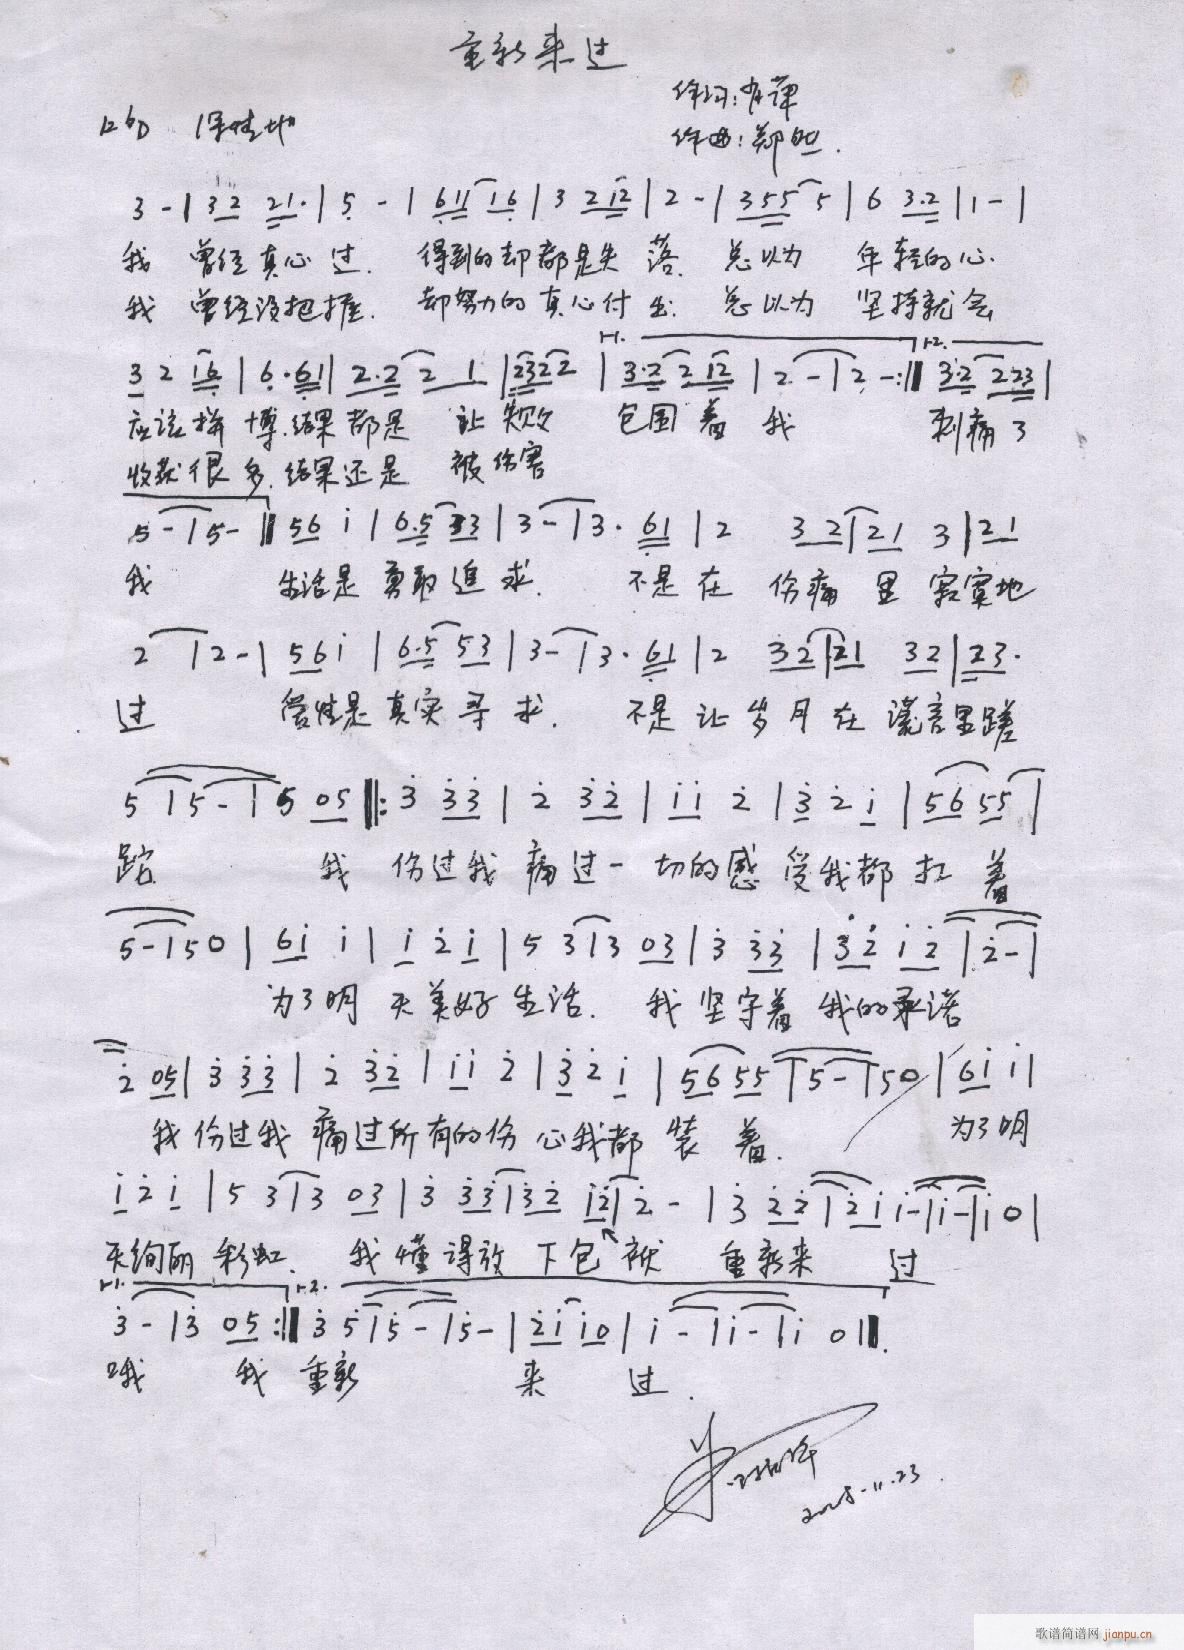 重新来过
作词:肖萍
作曲:郑旦.
深情地
3 - | 3 2 2 1 · | 5 - | 6 1 1 1 6 | 3 2 1 2 | 2 - | 3 5 5 5 | 6 3 · 2 | 1 - |
我 曾经真心过. 得到的却都是失落. 总以为 年轻的心.
我 曾经没把握. 却努力的真心付出. 总以为 坚持就会
1. 2.
3 2 1 6 | 6 · 6 1 | 2 · 2 2 1 | 2 3 2 2 | 3 · 2 2 1 2 | 2 - | 2 - :‖ 3 · 2 2 2 3 |
应该拼博.结果都是 让失败 包围着我 刺痛了
收获很多.结果还是 被伤害
5 - | 5 - ‖ 5 6 i | 6 . 5 3 3 | 3 - | 3 · 6 1 | 2 3 2 | 2 1 3 | 2 1
我 生活是勇敢追求. 不是在伤痛里寂寞地
2 | 2 - | 5 6 i | 6 . 5 5 3 | 3 - | 3 · 6 1 | 2 3 2 | 2 1 3 2 | 2 3 ·
过 爱情是真实寻求. 不是让岁月在谎言里蹉
5 | 5 - | 5 0 5 ‖: 3 3 3 | 2 3 2 | i i 2 | 3 2 i | 5 6 5 5 |
跎 我伤过我痛过一切的感受我都扛着
5 - | 5 0 | 6 i i | i 2 i | 5 3 | 3 0 3 | 3 3 3 | 3 2 i 2 | 2 - |
为了明天美好生活. 我坚守着我的承诺
2 0 5 | 3 3 3 | 2 3 2 | i i 2 | 3 2 i | 5 6 5 5 | 5 - | 5 0 | 6 i i |
我伤过我痛过所有的伤心我都装着. 为了明
i 2 i | 5 3 | 3 0 3 | 3 3 3 | 3 2 i 2 | 2 - | 3 2 2 | 2 i i - | i - | i 0 |
天绚丽彩虹. 我懂得放下包袱 重新来过
1. 2.
3 - | 3 0 5 :‖ 3 5 | 5 - | 5 - | 2 i i 0 | i - | i - | i 0 ‖.
哦 我重新 来过.
2008.11.23.
歌谱简谱网 jianpu.cn